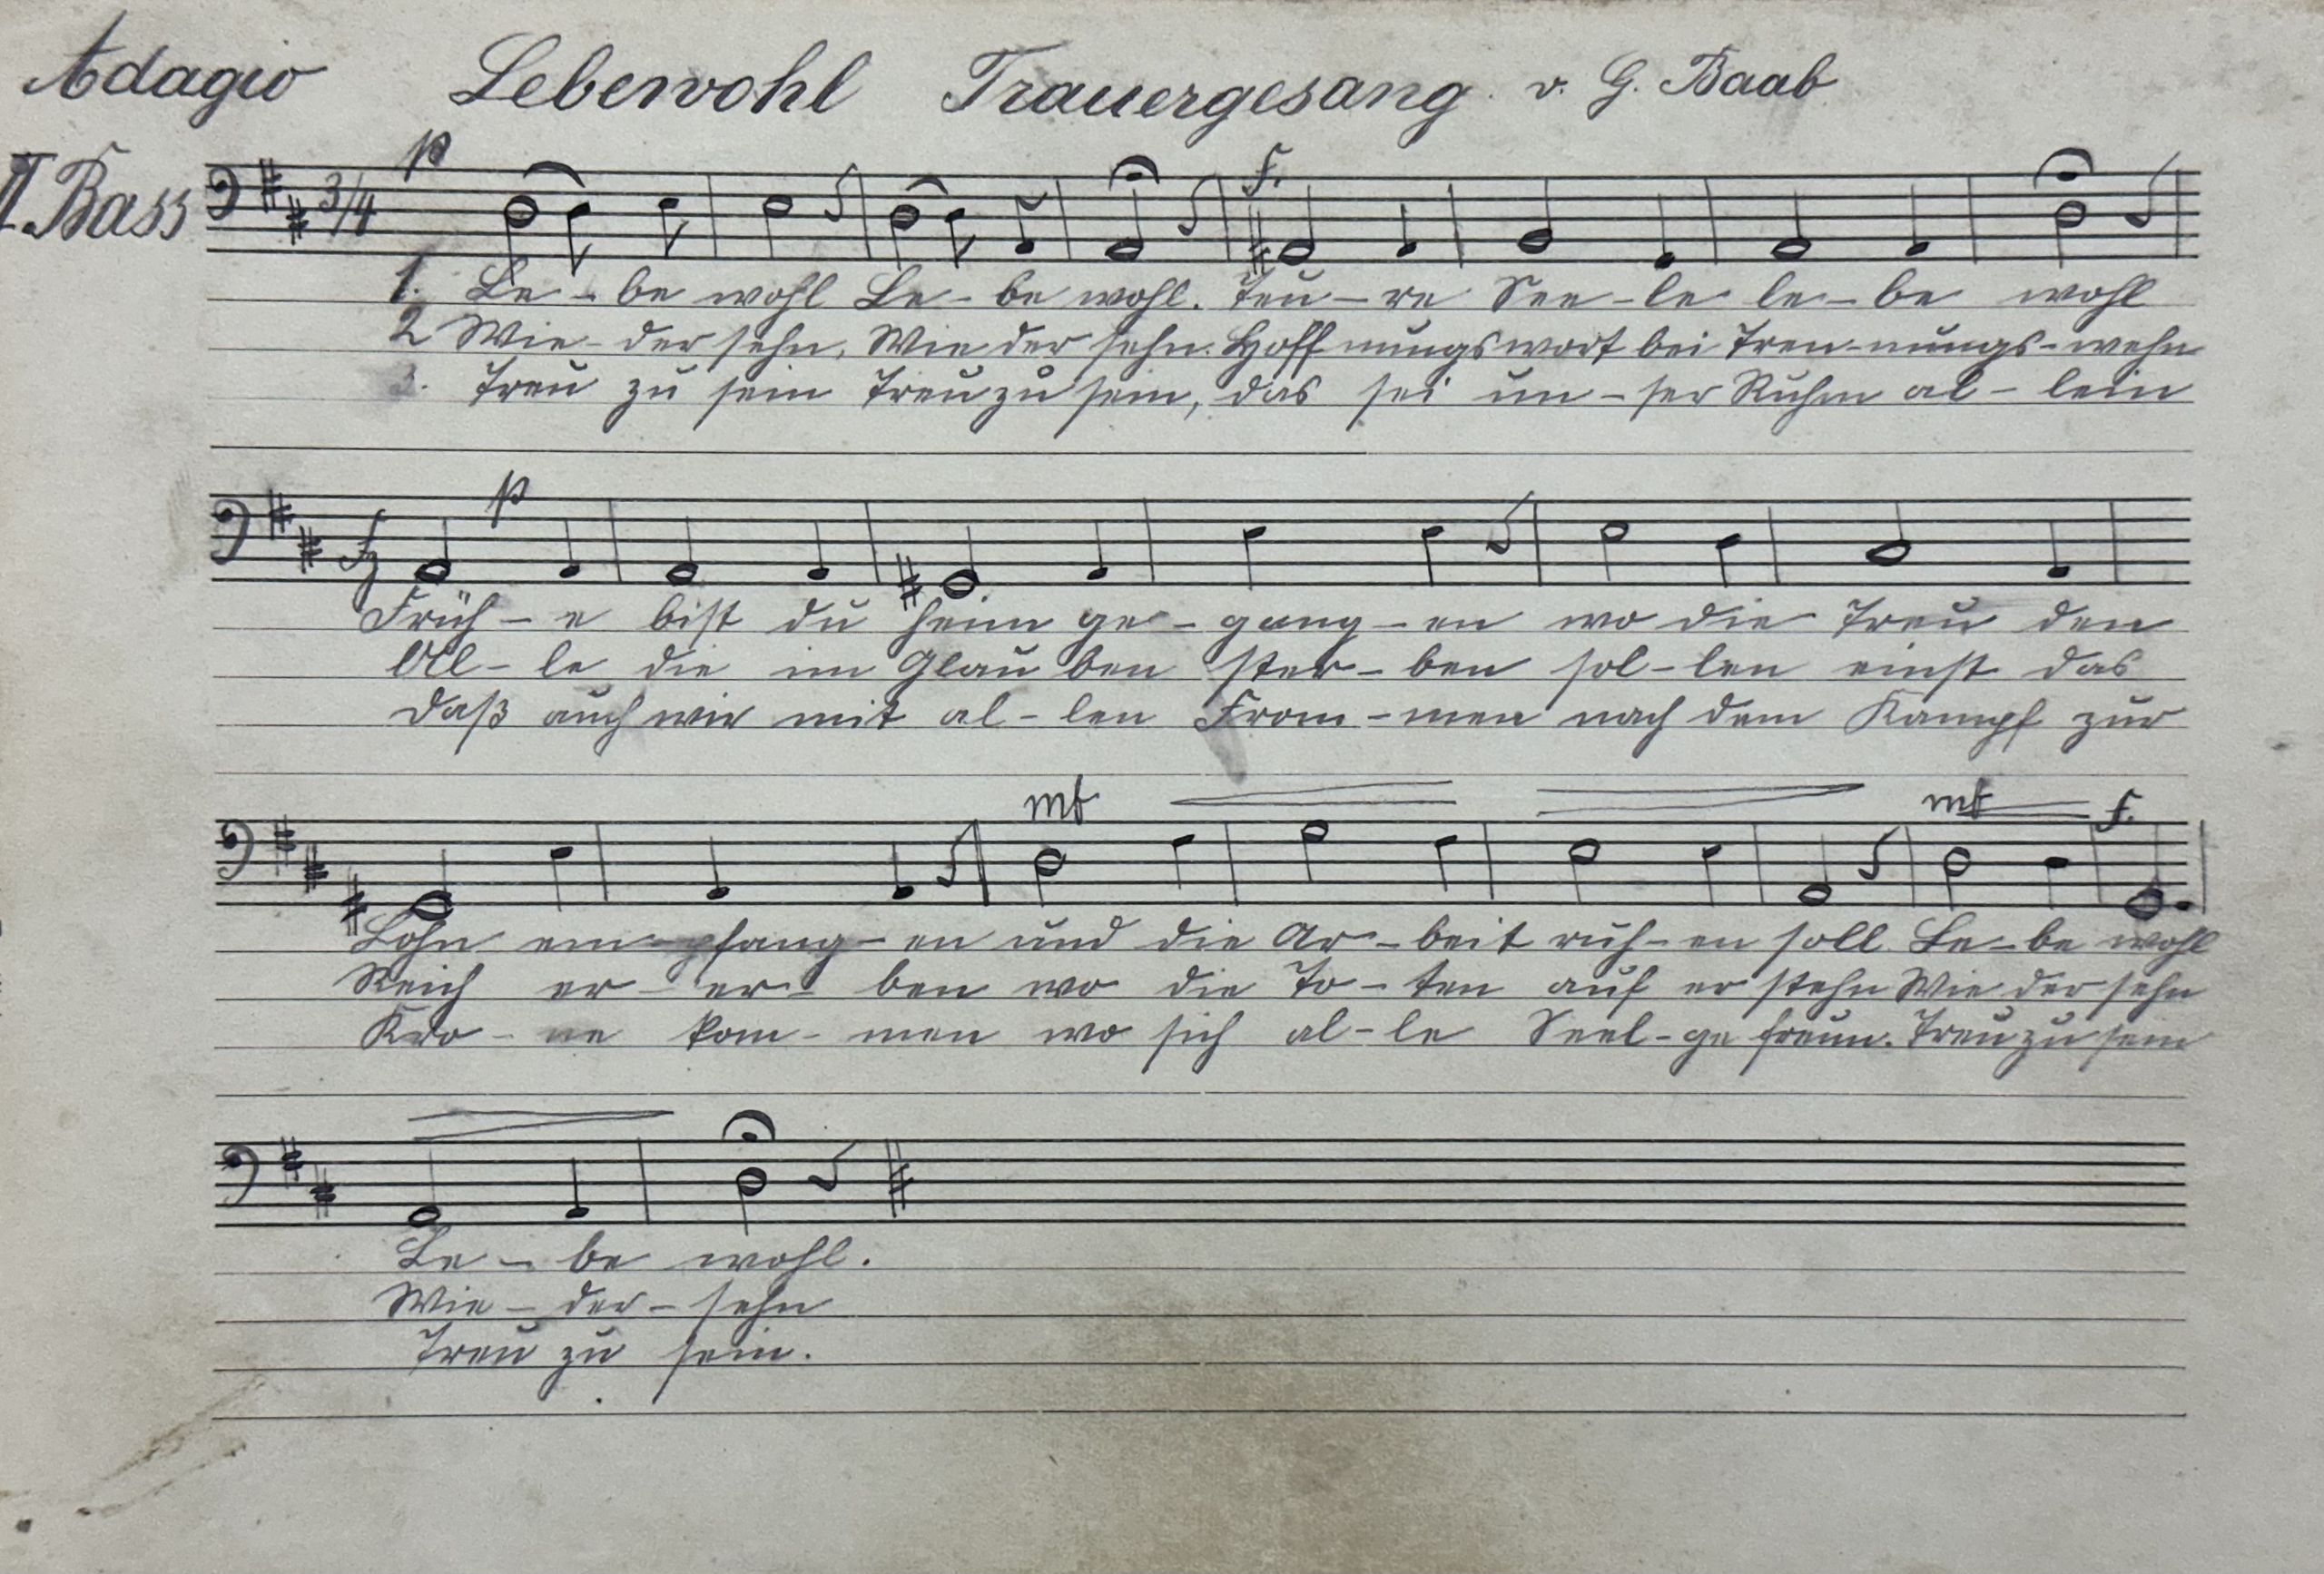 Adagio Lebewohl Trauergesang v. G. Baab
p f.
II. Bass 3/4
1. Le - be wohl Le - be wohl. Teu - re See - le le - be wohl
2 Wie - der sehn, Wie der sehn. Hoff nungs wort bei Tren - nungs - wehn
3. Treu zu sein Treu zu sein, das sei un - ser Ruhm al - lein
fz p
Früh - e bist du heim ge - gang - en wo die Treu den
Al - le die im Glau ben ster - ben sol - len einst das
Daß auch wir mit al - len From - men nach dem Kampf zur
mf mf f.
Lohn em - pfang - en und die Ar - beit ruh - en soll. Le - be wohl
Reich er - er - ben wo die To - ten auf er stehn Wie der sehn
Kro - ne kom - men wo sich al - le Seel - ge freun. Treu zu sein
Le - be wohl.
Wie - der - sehn
Treu zu sein.